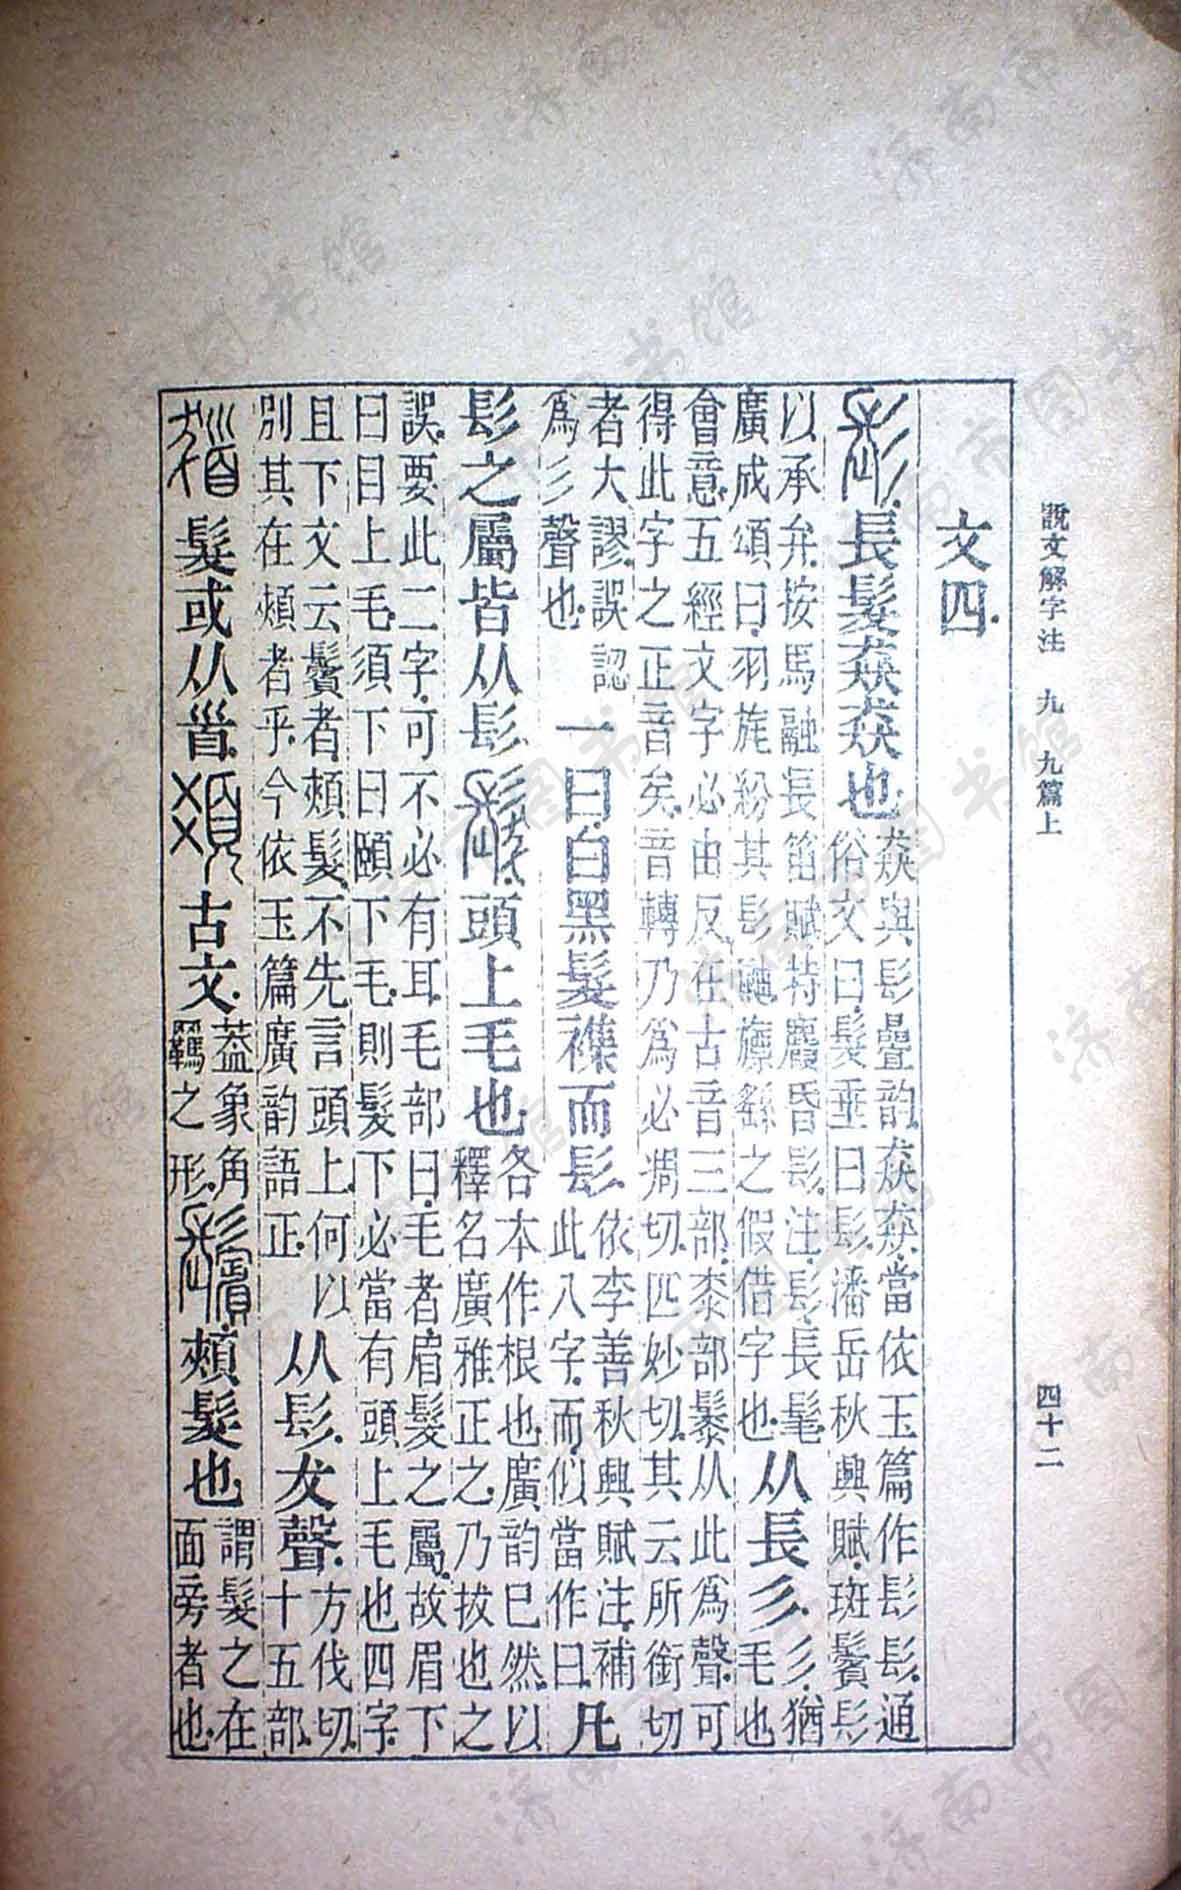 說文解字注 九 九篇上 四十二
文四
髟長髮猋猋也
猋與髟疊韵猋猋當依玉篇作髟髟通
俗文曰髮垂曰髟潘岳秋興賦斑鬢髟
以承弁按馬融長笛賦特麚昏髟注髟長髦
廣成頌曰羽旄紛其髟鼬之假借字也
从長彡
彡猶
毛也
會意五經文字必由反在古音三部桼部髹从此爲聲可
得此字之正音矣音轉乃爲必凋切匹妙切其云所銜切
者大謬誤認
爲彡聲也
一曰白黑髮襍而髟
依李善秋興賦注補
此八字而似當作曰
凡
髟之屬皆从髟髮頭上毛也
各本作根也廣韵已然以
釋名廣雅正之乃拔也之
誤要此二字可不必有耳毛部曰毛者眉髮之屬故眉下
曰目上毛須下曰頤下毛則髮下必當有頭上毛也四字
且下文云鬢者頰髮不先言頭上何以
別其在頰者乎今依玉篇廣韵語正
从髟犮聲
方伐切
十五部
髮或从首
古文
葢象角
羈之形
鬢頰髮也
謂髮之在
面旁者也
济南市图书馆